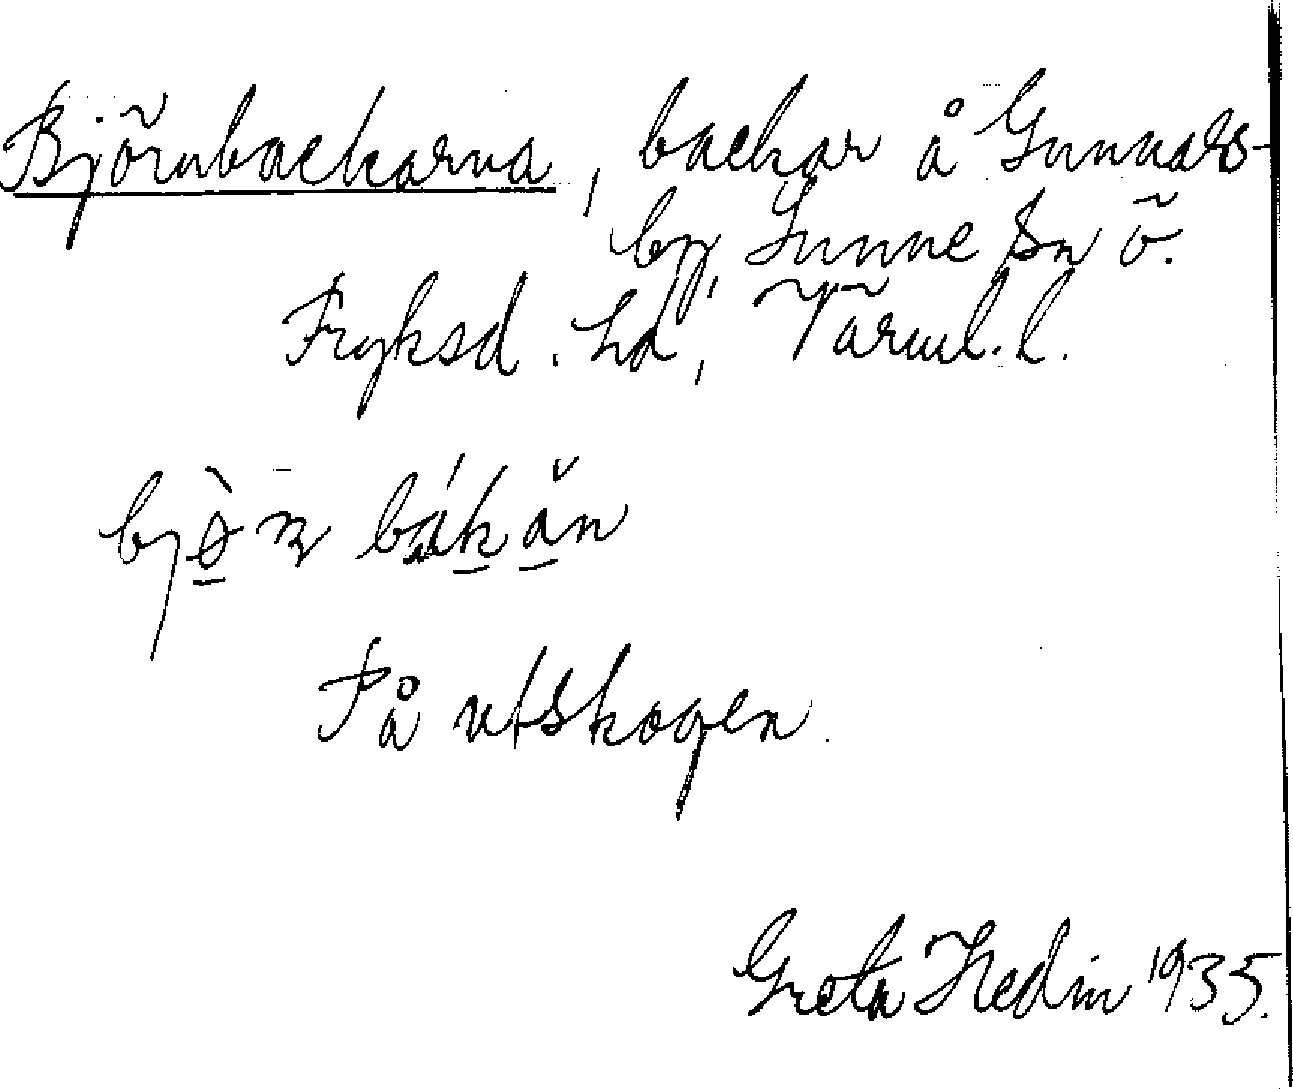 Björnbackarna, backar å Gunnars-
by, Sunne sn ö.
Fryksd. hd, Värml. l.
bjø̀ɳ bákăn
På utskogen.
Greta Hedin 1935.